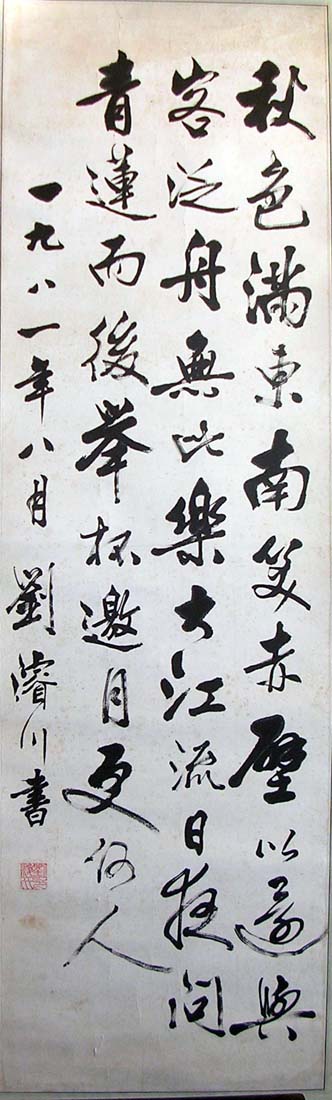 秋色滿東南赤壁以還與
客泛舟無此樂大江流日夜問
青蓮而後舉杯邀月更何人
一九八一年八月劉濬川書